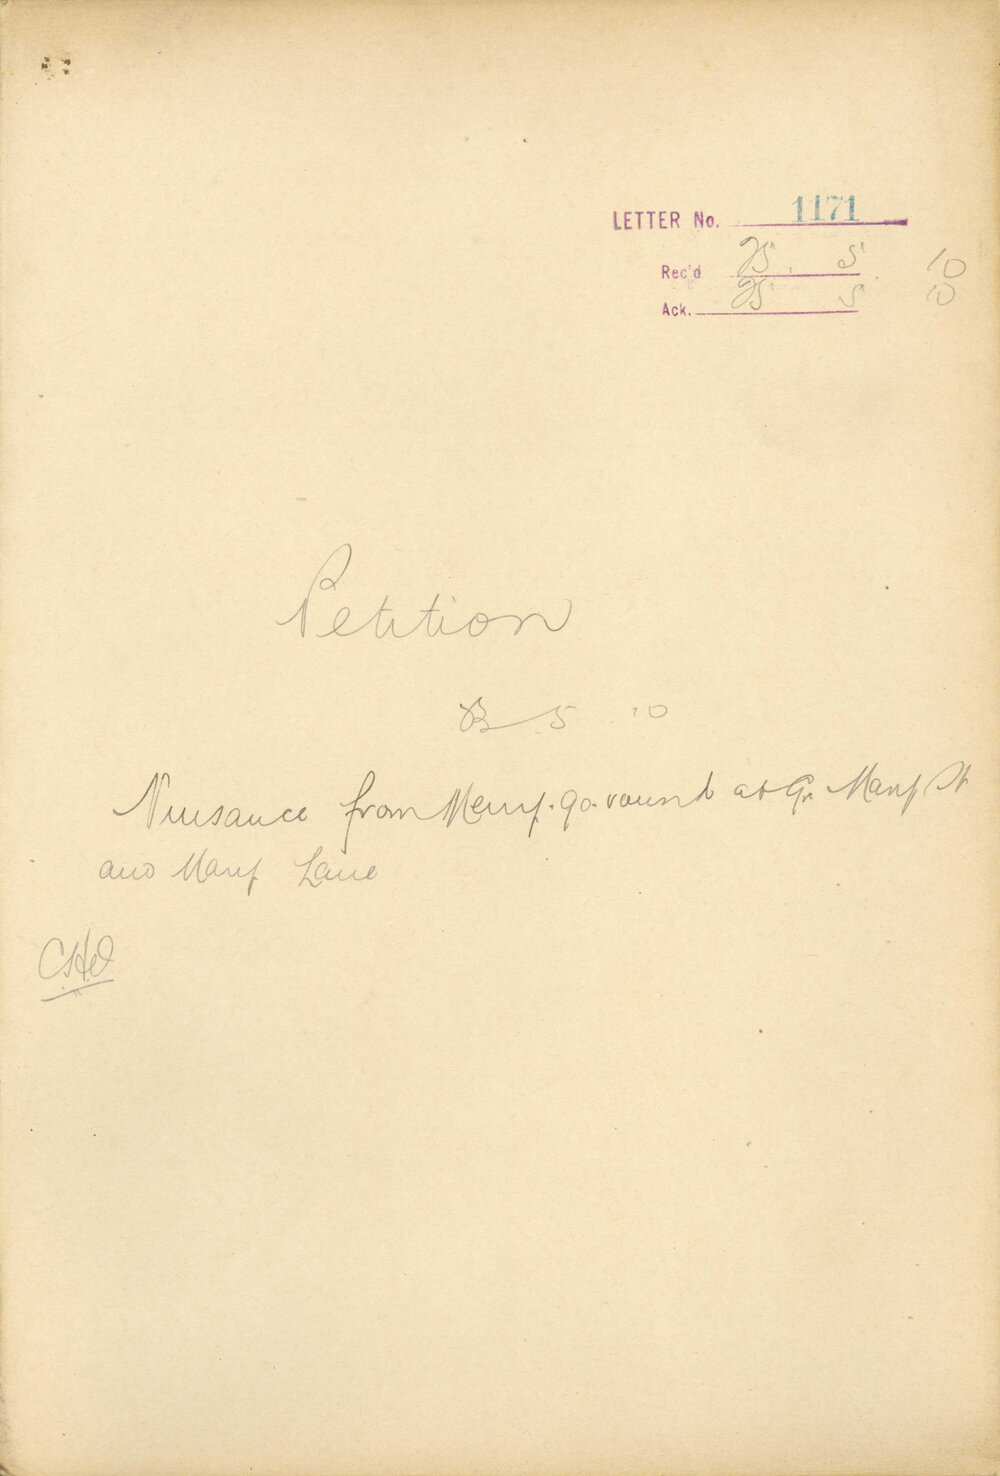 LETTER No. 1171
Rec'd 25. 5. 10
Ack. 25 5 10
Petition
5 10
Nuisance from Merry-go-round at Gr. Mary St
and Mary Lane